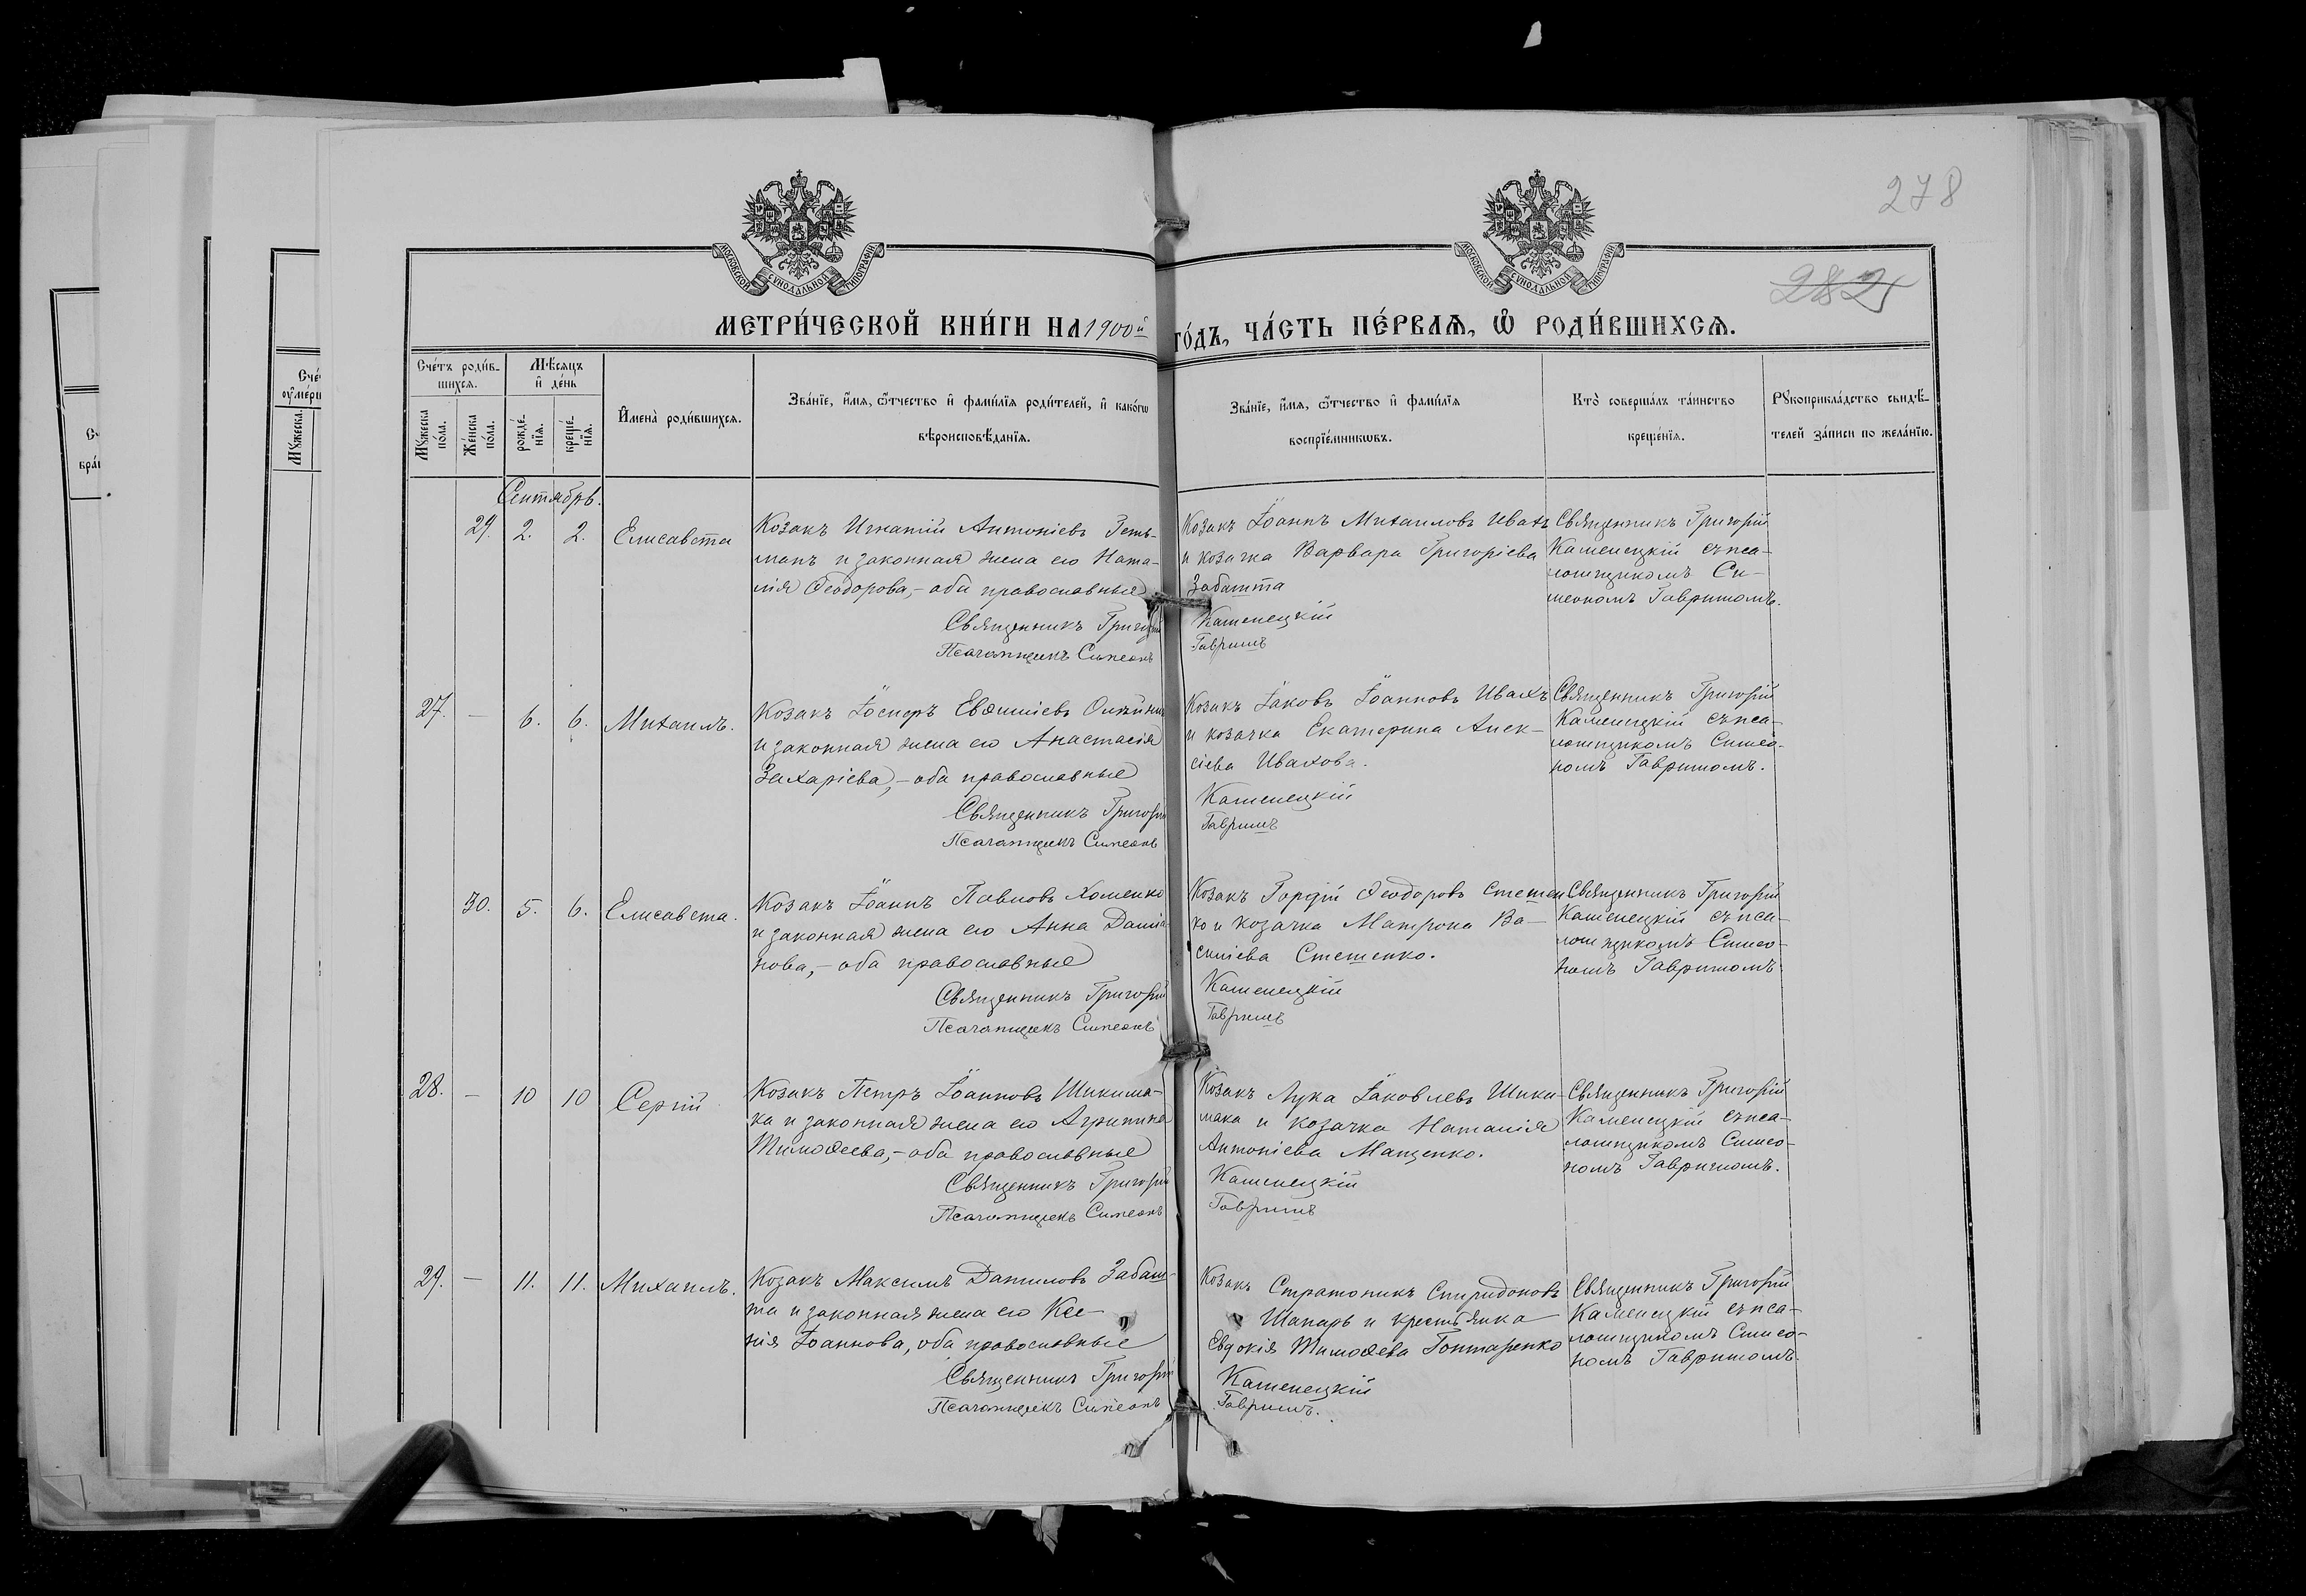 278
282
МОСКОВСКОЙ СѴНОДАЛЬНОЙ ТИПОГРАФІИ
МОСКОВСКОЙ СѴНОДАЛЬНОЙ ТИПОГРАФІИ
МЕТРИ́ЧЕСКОЙ КНИ́ГИ НА 1900й ГО́ДЪ, ЧА́СТЬ ПЕ́РВАѦ, Ѡ҆ РОДИ́ВШИХСѦ.
Сче́тъ роди́в-
шихсѧ.
Мꙋжеска по́ла.
Же́нска по́ла.
Мѣ́сѧцъ
и҆ де́нь
рожде́-
нїѧ.
креще́-
нїѧ.
И҆мена̀ роди́вшихсѧ.
Зва́нїе, и҆́мѧ, ѻ҆́тчество и҆ фами́лїѧ роди́телей, и҆ како́гѡ
вѣроисповѣ́данїѧ.
Зва́нїе, и҆́мѧ, ѻ҆́тчество и҆ фами́лїѧ
воспрїе́мникѡвъ.
Кто̀ соверша́лъ та́инство
креще́нїѧ.
Рꙋкоприкла́дство свидѣ́-
телей за́писи по жела́нїю.
Сентябрь.
29. 2. 2. Елисавета
Козакъ Игнатій Антоніевъ Геть-
манъ и законная жена его Ната-
лія Ѳеодорова, - оба православные
Священникъ Григорій Каменецкій
Псаломщикъ Симеонъ Гавришъ
Козакъ Іоаннъ Михаиловъ Ивахъ
и козачка Варвара Григоріева
Забашта
Священникъ Григорій
Каменецкій съ пса-
ломщикомъ Си-
меономъ Гавришомъ.
27. — 6. 6. Михаилъ.
Козакъ Іосифъ Евѳиміевъ
и законная жена его Анастасія
Захаріева, - оба православные
Священникъ Григорій Каменецкій
Псаломщикъ Симеонъ Гавришъ
Козакъ Іаковъ Іоанновъ Ивахъ
и козачка Екатерина Алек-
сіева Ивахова.
Священникъ Григорій
Каменецкій съ пса-
ломщикомъ Симео-
номъ Гавришомъ.
30. 5. 6. Елисавета.
Козакъ Іоаннъ Павловъ Хоменко
и законная жена его Анна Даміа-
нова, - оба православные
Священникъ Григорій Каменецкій
Псаломщикъ Симеонъ Гавришъ
Козакъ Гордій Ѳеодоровъ Стешен
ко и козачка Матрона Ва-
силіева Стешенко.
Священникъ Григорій
Каменецкій съ пса-
ломщикомъ Симео-
номъ Гавришомъ.
28. — 10 10 Сергій
Козакъ Петръ Іоанновъ Шикима-
ка и законная жена его Агрипина
Тимоѳеева, - оба православные
Священникъ Григорій Каменецкій
Псаломщикъ Симеонъ Гавришъ
Козакъ Лука Іаковлевъ Шики-
мака и козачка Наталія
Антоніева Мащенко.
Священникъ Григорій
Каменецкій съ пса-
ломщикомъ Симео-
номъ Гавришомъ.
29. — 11. 11. Михаилъ.
Козакъ Максимъ Даниловъ Забаш-
та и законная жена его Ксе-
нія Іоаннова, оба православные
Священникъ Григорій Каменецкій
Псаломщикъ Симеонъ Гавришъ.
Козакъ Стратоникъ Спиридоновъ
Шапарь и крестьянка
Евдокія Тимоѳева Гонтаренко
Священникъ Григорій
Каменецкій съ пса-
ломщикомъ Симео-
номъ Гавришомъ.